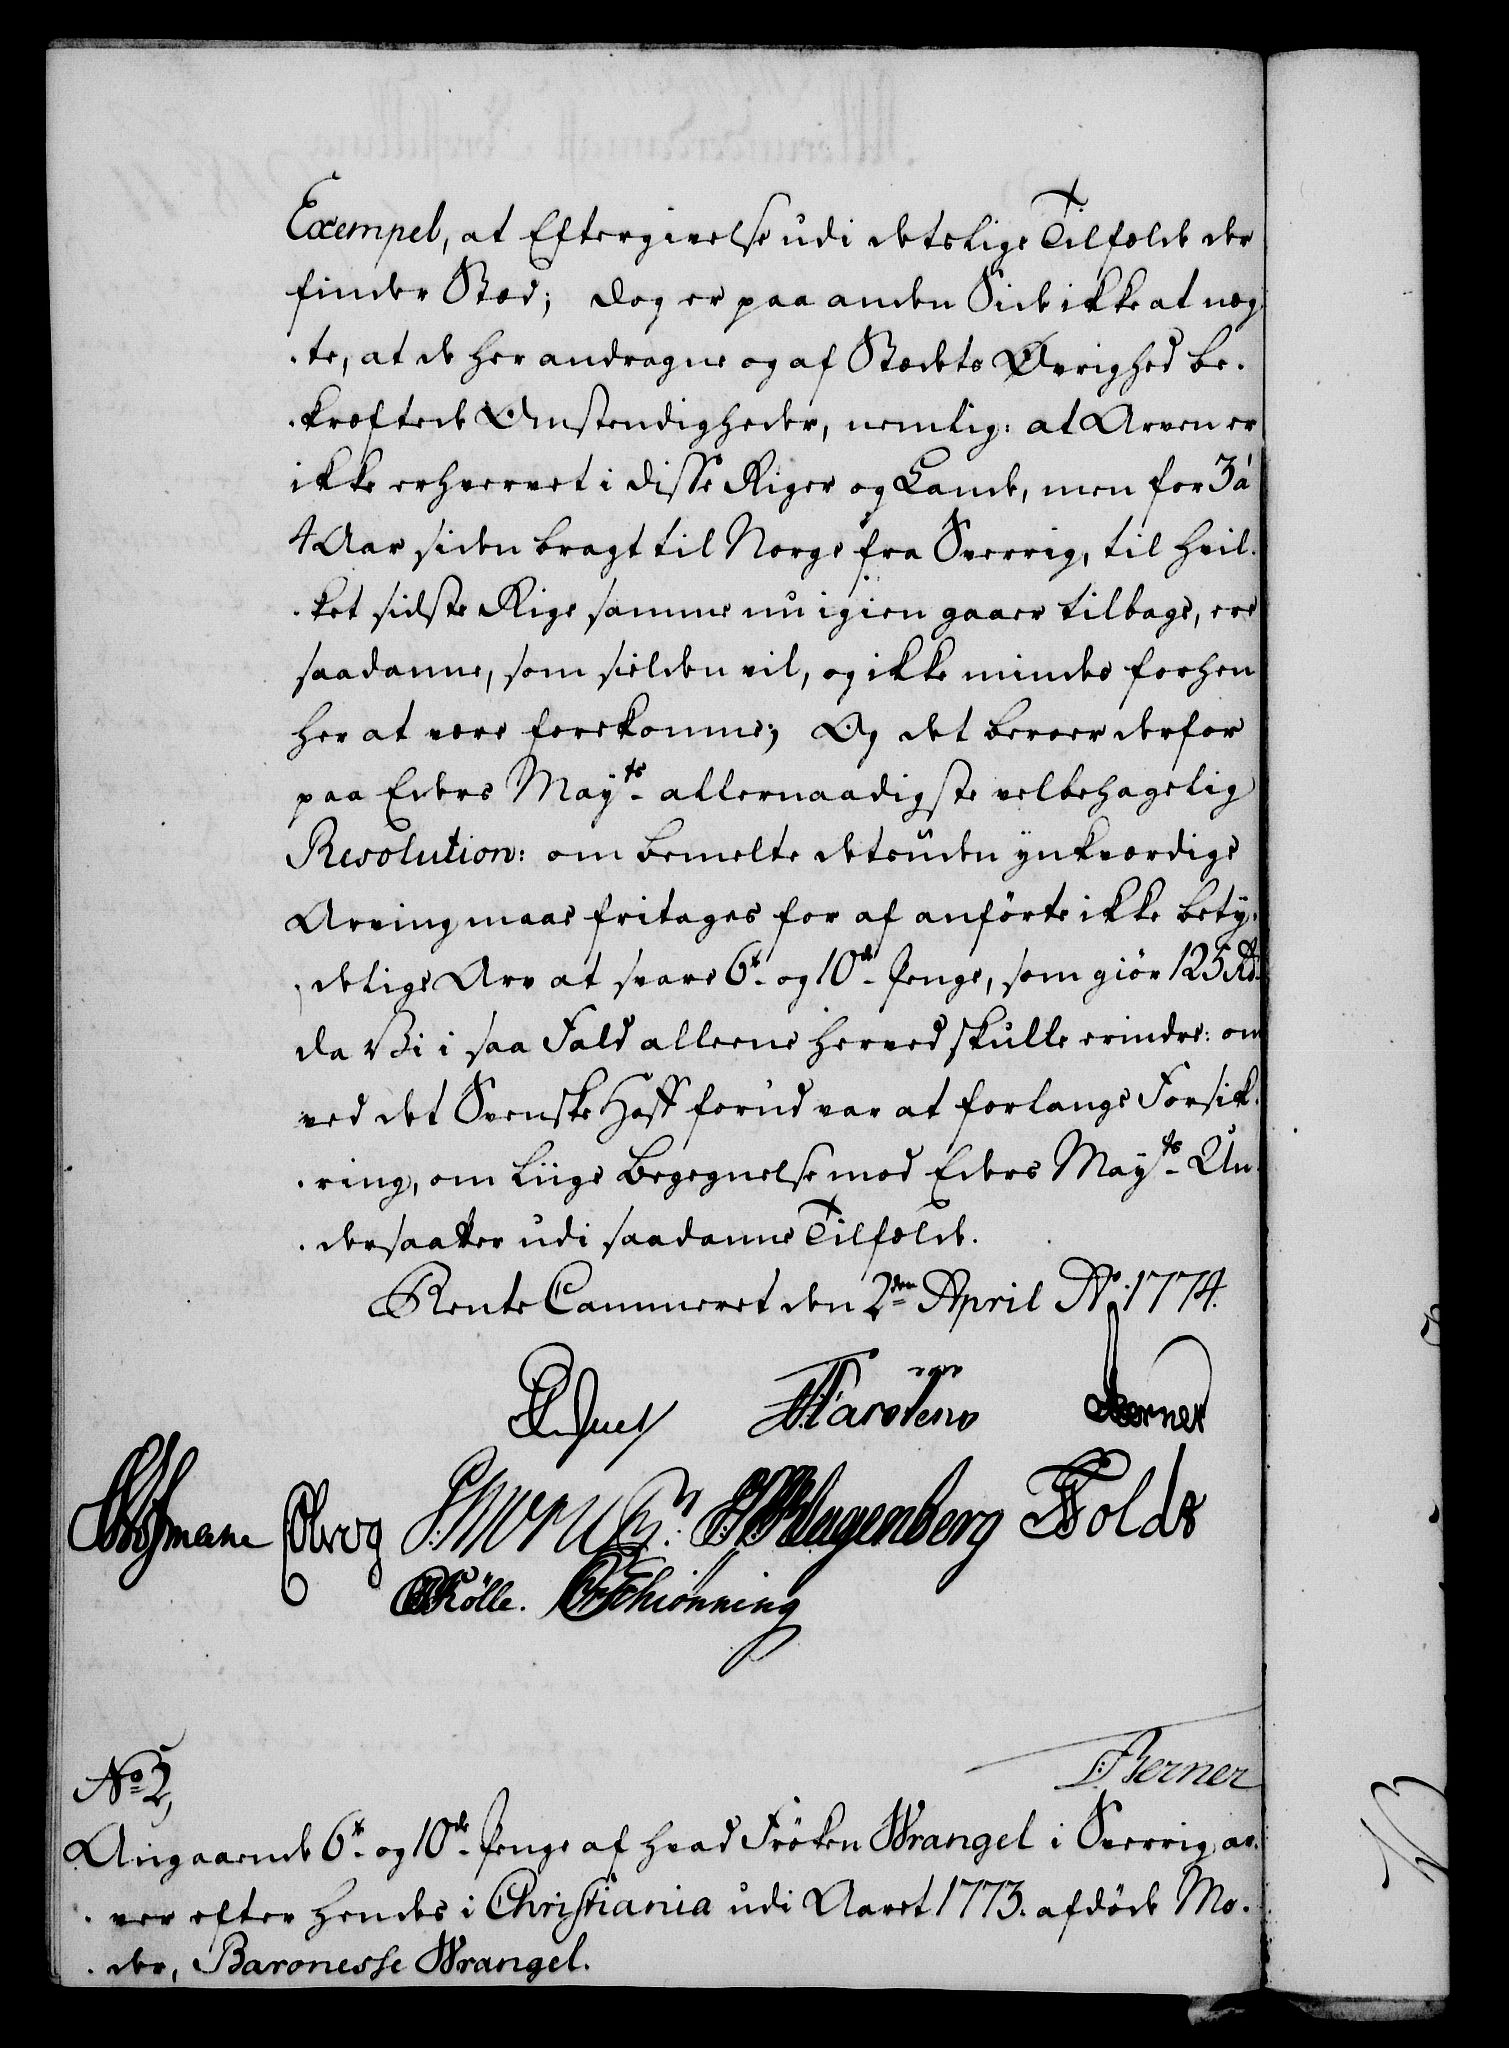 Exempel, at Eftergivelse udi detslige Tilfælde der
finder Stæd; dog er paa anden Side ikke at næg-
te, at de her andragne og af Stædets Øvrighed be-
kræftede Omstændigheder, nemlig: at Arven er
ikke erhvervet i disse Riger og Lande, men for 3 à
4 Aar siden bragt til Norge fra Sverrig, til hvil-
ket sidste Rige samme nu igien gaaer tilbage, ere
saadanne, som sielden vil, og ikke mindes forhen
her at være forekomne; Og det beroer derfor
paa Eders Mayts allernaadigste velbehagelig
Resolution: om bemelte desuden ynkværdige
Arving maae fritages for af anførte ikke bety-
delige Arv at svare 6te og 10de Penge, som giör 125 Rd.
da Vi i saa Fald alleene herved skulle erindre: om
ved det Svenske Hoff forud var at forlange Forsik-
ring, om liige Begegnelse mod Eders Mayts Un-
dersaatter udi saadanne Tilfælde.
Rente Cammeret den 2den April Ao. 1774.
Berner
Hofmann
Wagenberg Holdt
Rölle. Schiönning
Berner
No 2,
Angaaende 6te og 10de Penge af hvad Fröken Wrangel i Sverrig ar-
ver efter hendes i Christiania udi Aaret 1773. afdöde Mo-
der, Baronesse Wrangel.